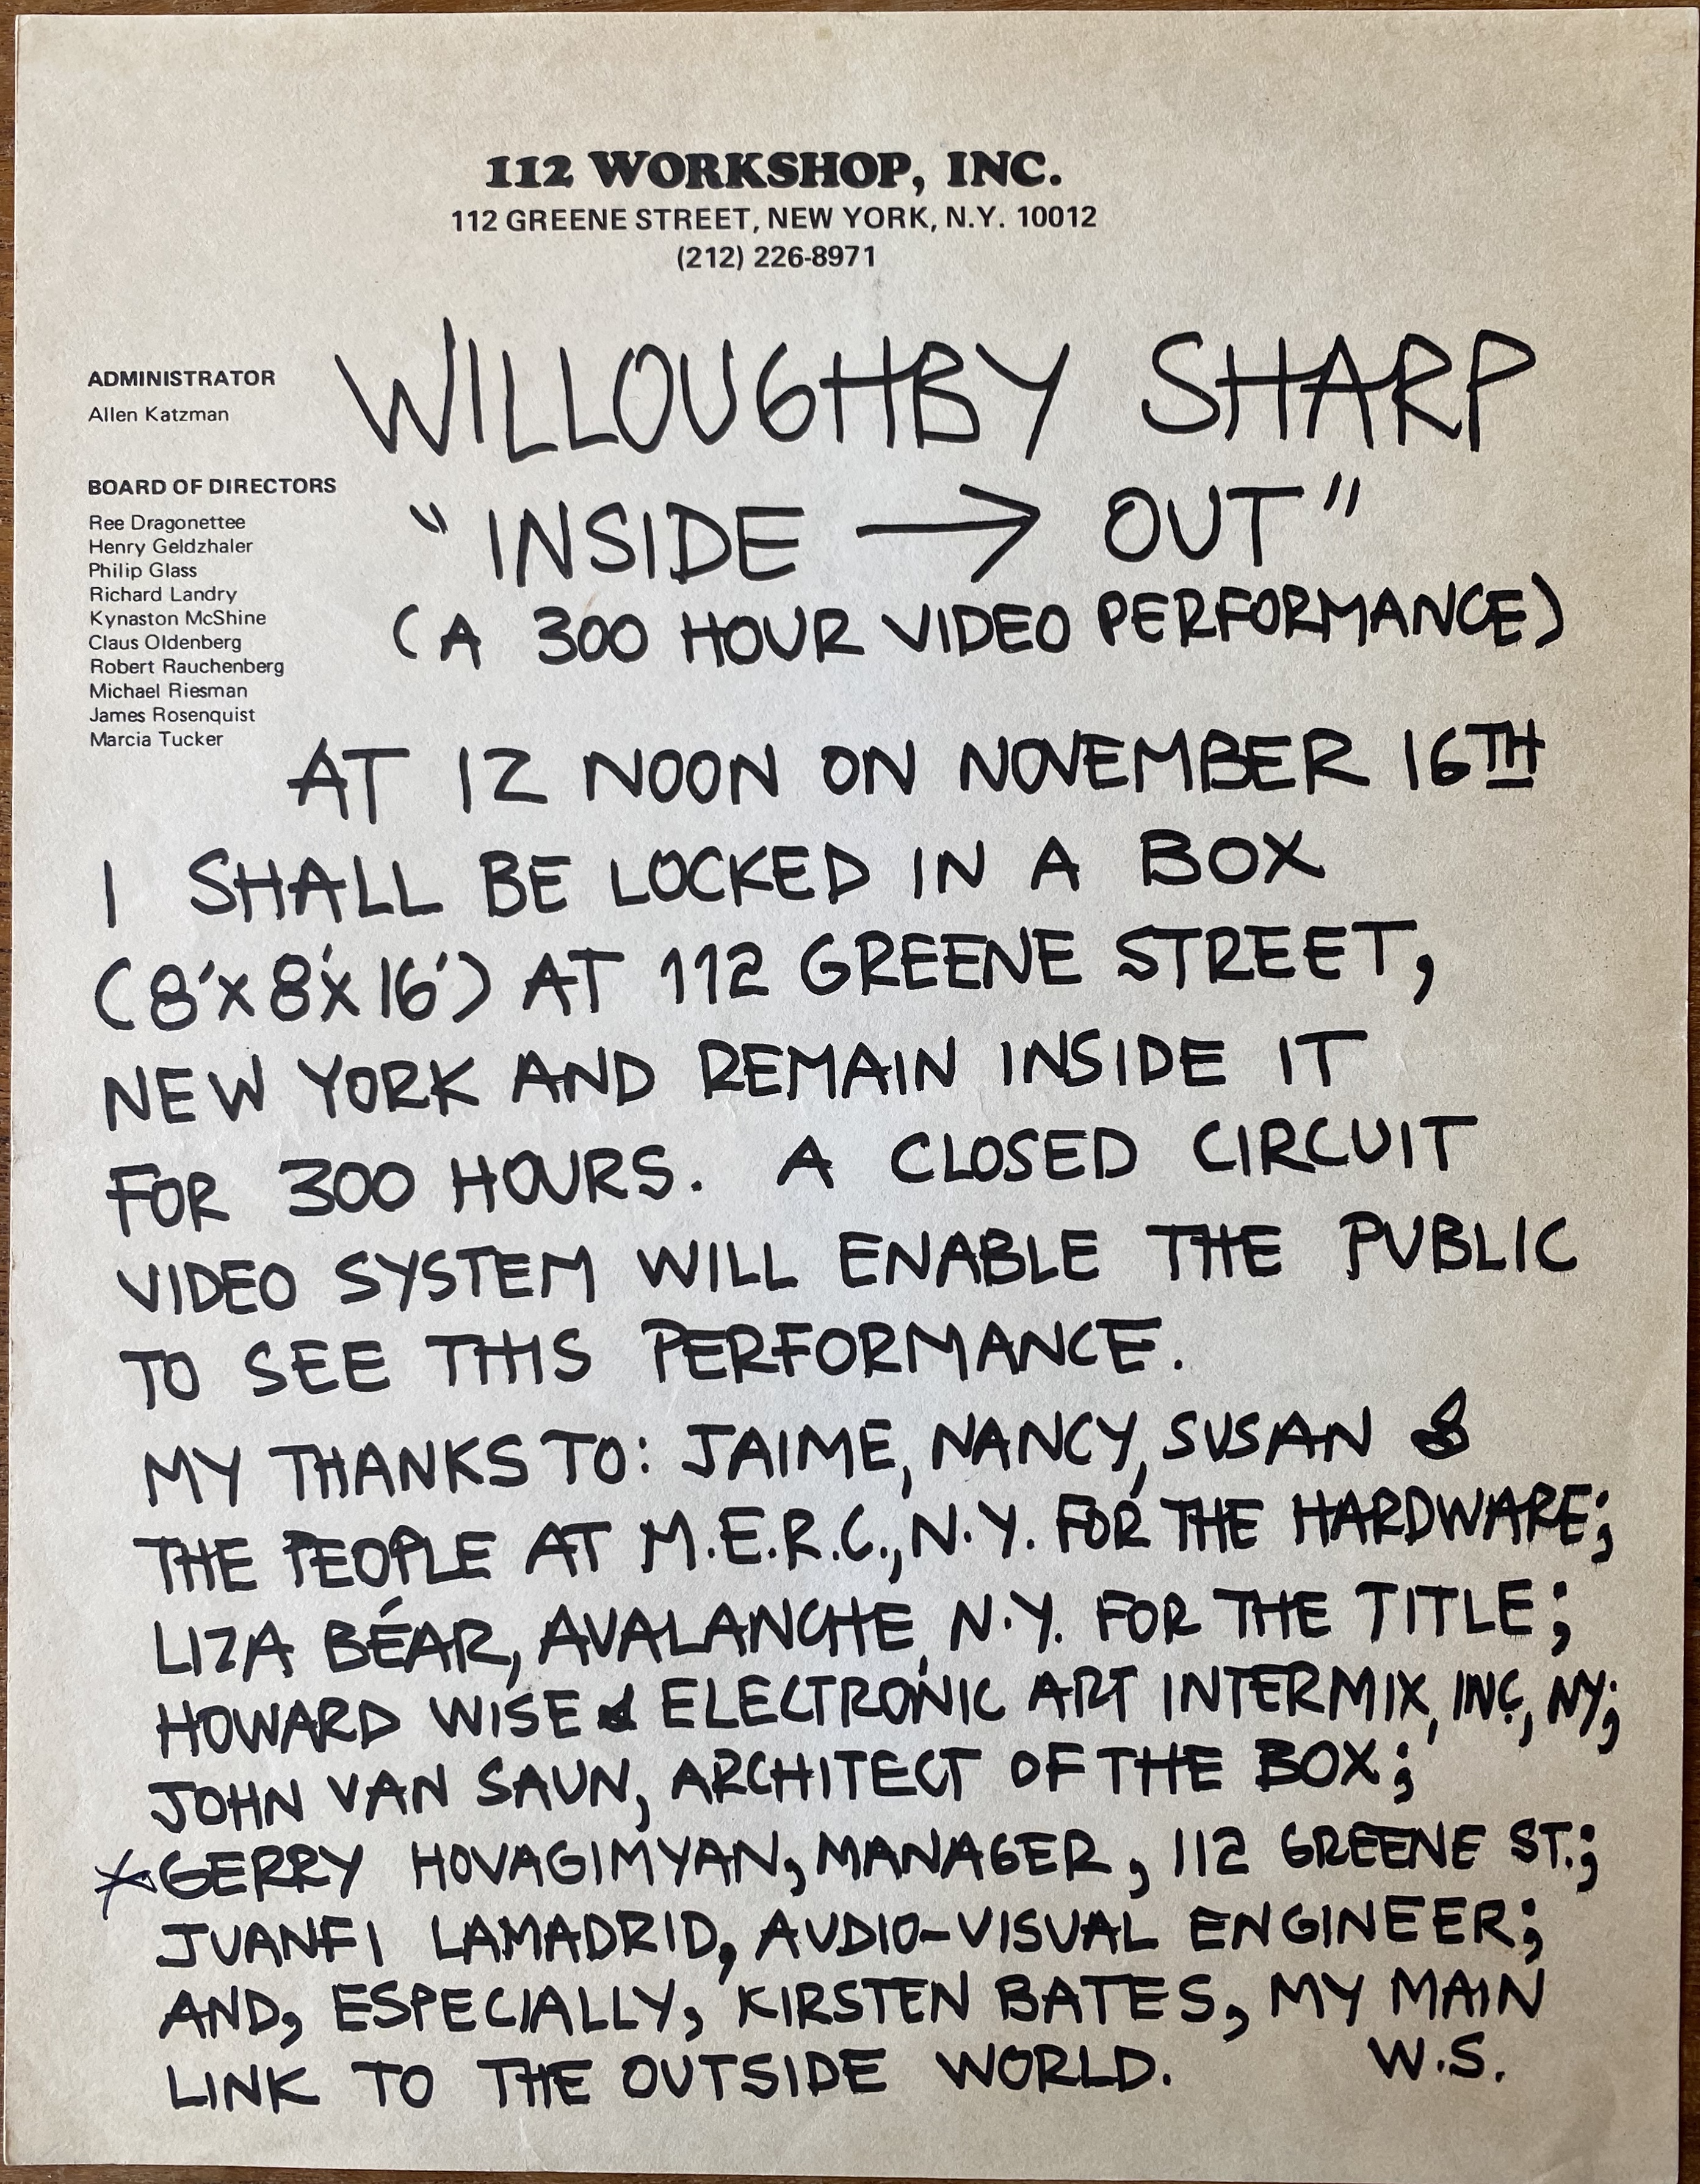 112 WORKSHOP, INC.
112 GREENE STREET, NEW YORK, N.Y. 10012
(212) 226-8971
ADMINISTRATOR
Allen Katzman
BOARD OF DIRECTORS
Ree Dragonettee
Henry Geldzhaler
Philip Glass
Richard Landry
Kynaston McShine
Claus Oldenberg
Robert Rauchenberg
Michael Riesman
James Rosenquist
Marcia Tucker
WILLOUGHBY SHARP
"INSIDE → OUT"
(A 300 HOUR VIDEO PERFORMANCE)
AT 12 NOON ON NOVEMBER 16TH
I SHALL BE LOCKED IN A BOX
(8'x8'x16') AT 112 GREENE STREET,
NEW YORK AND REMAIN INSIDE IT
FOR 300 HOURS. A CLOSED CIRCUIT
VIDEO SYSTEM WILL ENABLE THE PUBLIC
TO SEE THIS PERFORMANCE.
MY THANKS TO: JAIME, NANCY, SUSAN &
THE PEOPLE AT M.E.R.C., N.Y. FOR THE HARDWARE;
LIZA BÉAR, AVALANCHE, N.Y. FOR THE TITLE;
HOWARD WISE & ELECTRONIC ART INTERMIX, INC., NY;
JOHN VAN SAUN, ARCHITECT OF THE BOX;
*GERRY HOVAGIMYAN, MANAGER, 112 GREENE ST.;
JUANFI LAMADRID, AUDIO-VISUAL ENGINEER;
AND, ESPECIALLY, KIRSTEN BATES, MY MAIN
LINK TO THE OUTSIDE WORLD. W.S.